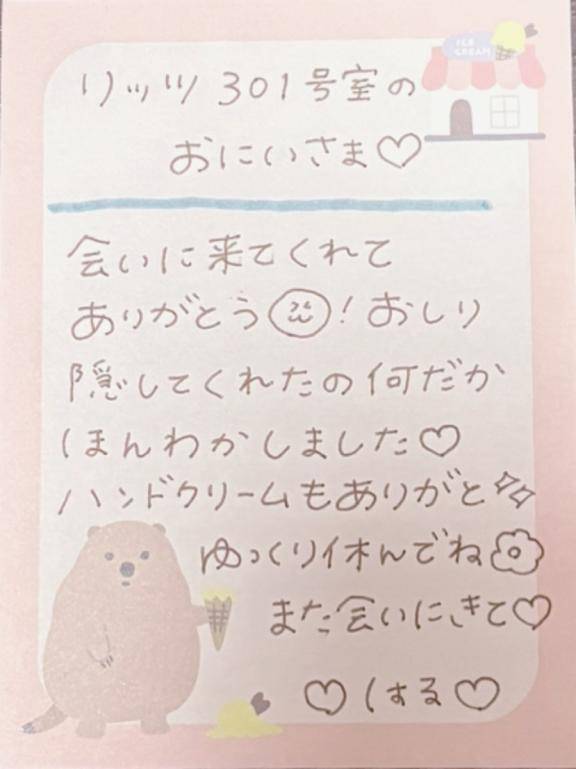 ICE
CREAM
リッツ 301号室の
おにいさま♡
会いに来てくれて
ありがとう！おしり
隠してくれたの何だか
ほんわかしました♡
ハンドクリームもありがと
ゆっくり休んでね
また会いにきて♡
♡はる♡